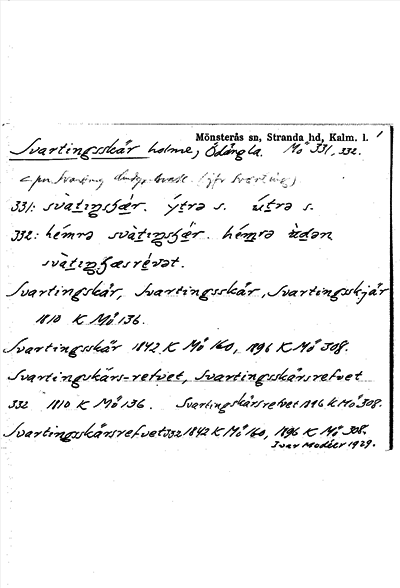 Mönsterås sn, Stranda hd, Kalm. l.
Svartingsskär holme, Ödängla. Mö 331, 332.
331: svàtıngʃǽr. ýtrə s. útrə s.
332: hémrə svàtıngʃǽr. hémrə ùdən
svàtıngʃæsrévət.
Svartingskär, Svartingsskär, Svartingsskjär
1810 K Mö 136.
Svartingsskär 1842 K Mö 160, 1896 K Mö 308.
Svartingskärs-refvet, Svartingsskärsrefvet
332 1810 K Mö 136. Svartingskärsrefvet 1896 K Mö 308.
Svartingsskärsrefvet 332 1842 K Mö 160, 1896 K Mö 308.
Ivar Modéer 1929.